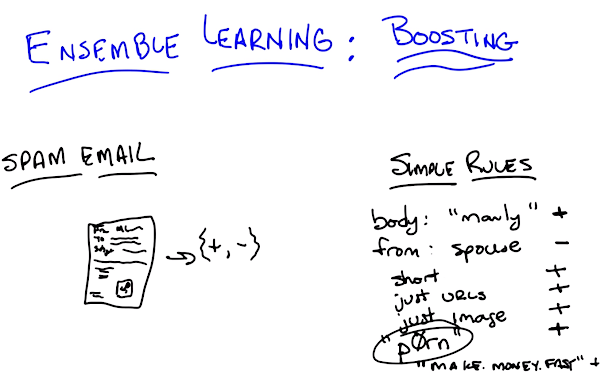 ENSEMBLE LEARNING: BOOSTING
SPAM EMAIL
{+, -}
SIMPLE RULES
body: "manly" +
from: spouse -
short +
just URLS +
just image +
"pØrn" +
"MAKE.MONEY.FAST" +